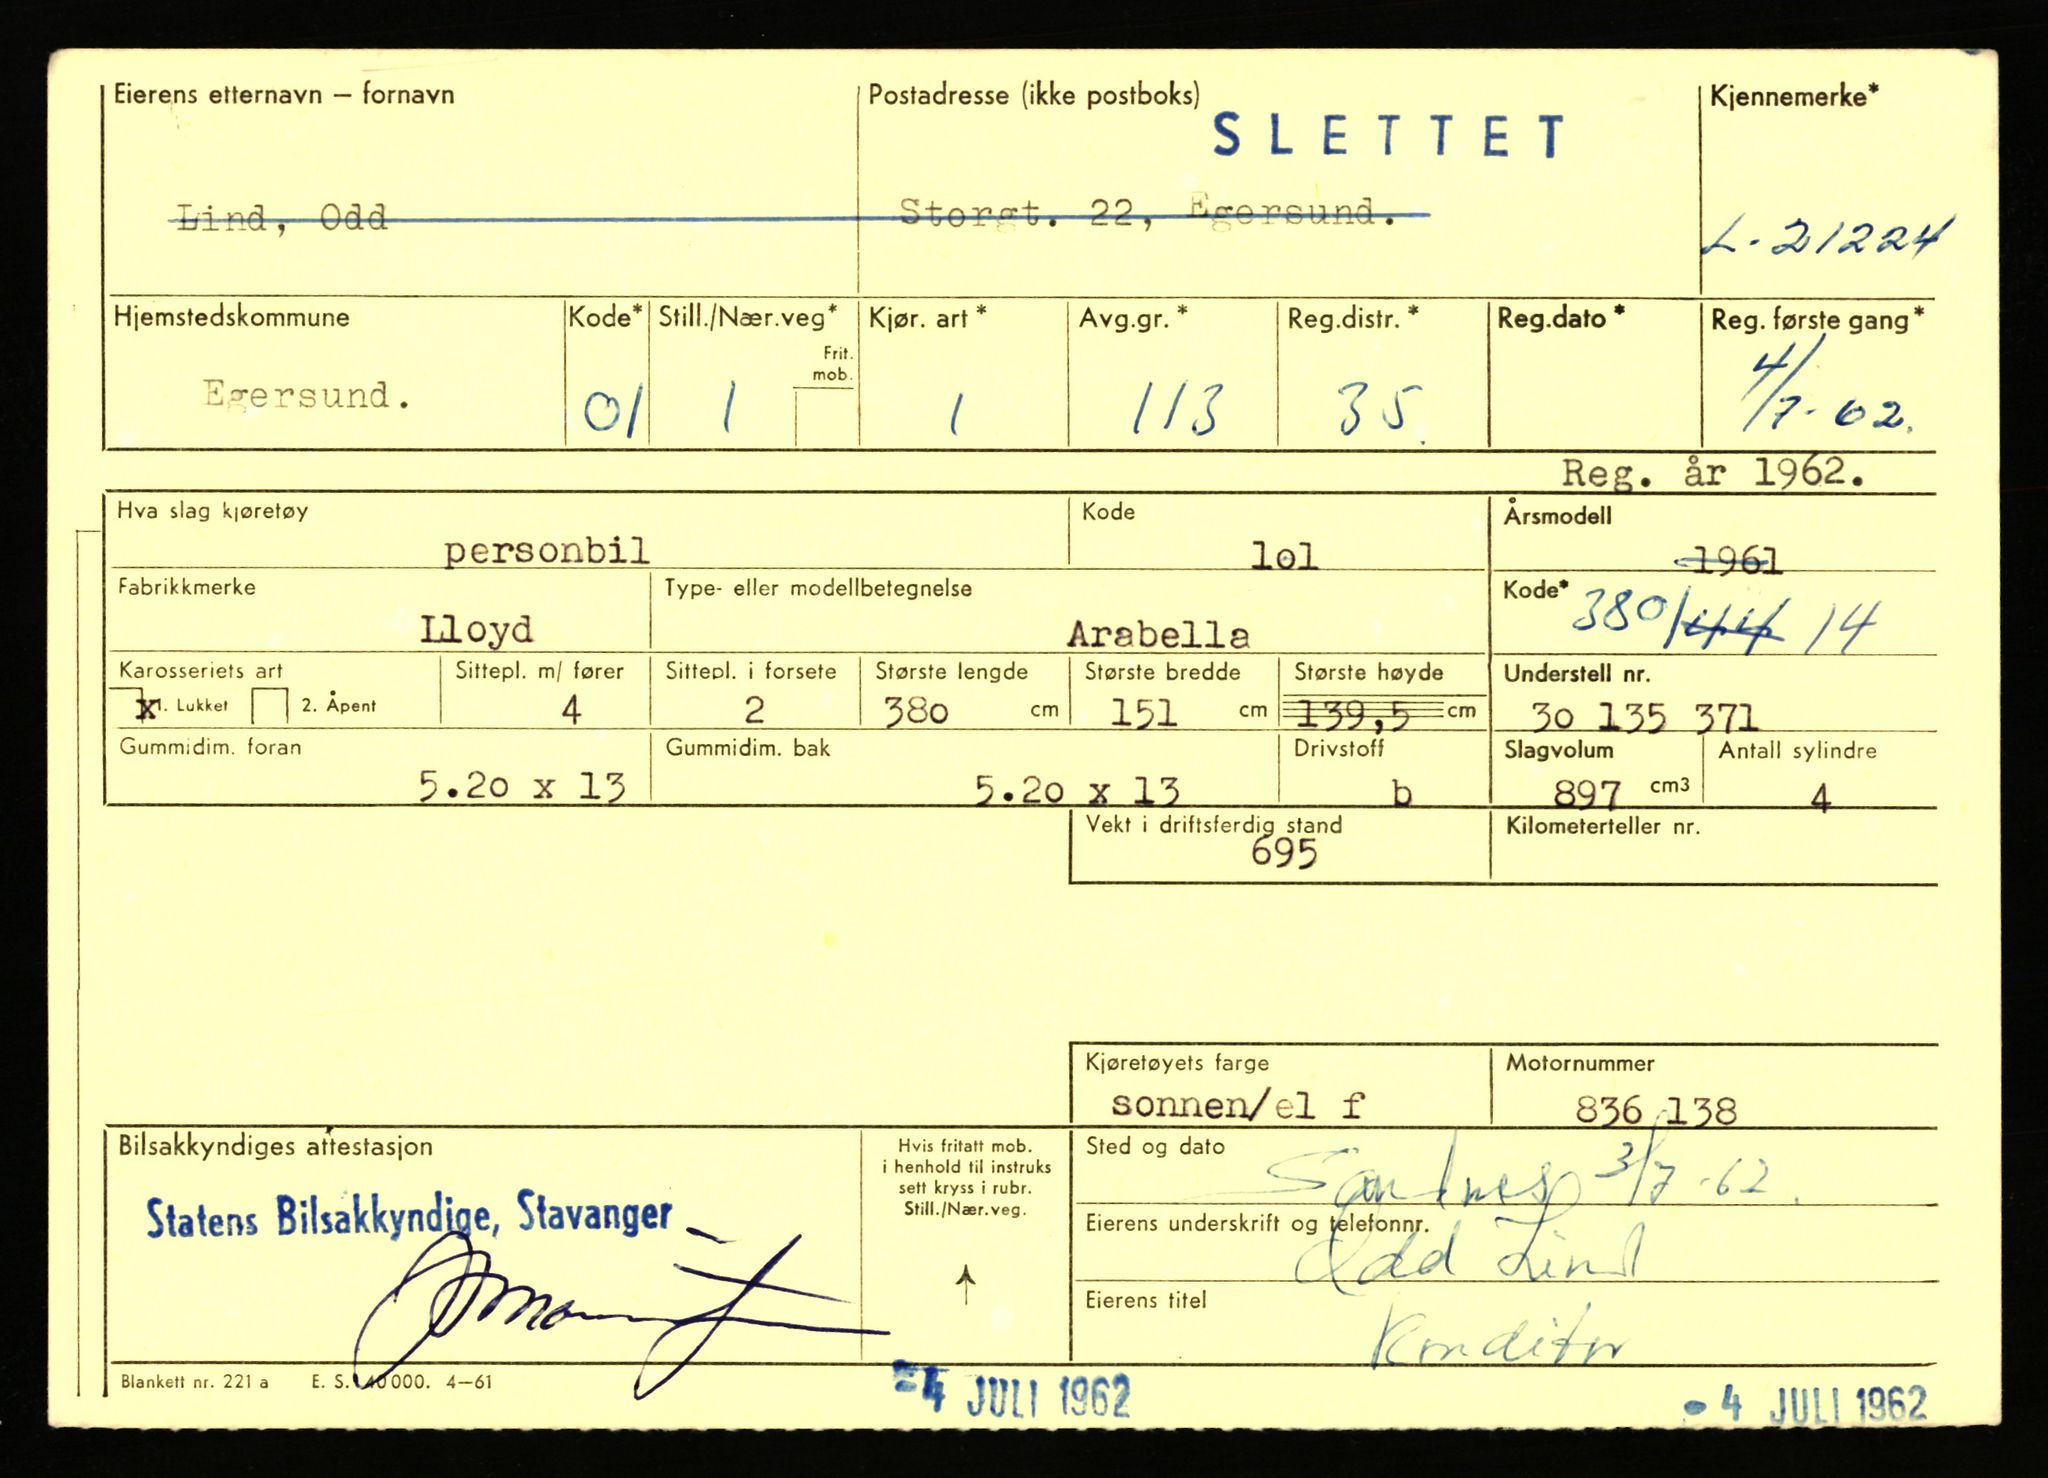 Eierens etternavn – fornavn
Postadresse (ikke postboks)
Kjennemerke*
SLETTET
Lind, Odd
Storgt. 22, Egersund.
L-21224
Hjemstedskommune
Kode*
Still./Nær.veg*
Frit. mob.
Kjør. art*
Avg.gr.*
Reg.distr.*
Reg.dato*
Reg. første gang*
Egersund.
01
1
1
113
35.
4/7-62.
Reg. år 1962.
Hva slag kjøretøy
Kode
Årsmodell
personbil
lol
1961
Fabrikkmerke
Type- eller modellbetegnelse
Kode*
380/44 14
Lloyd
Arabella
Karosseriets art
Sittepl. m/ fører
Sittepl. i forsete
Største lengde
Største bredde
Største høyde
Understell nr.
x 1. Lukket
2. Åpent
4
2
380 cm
151 cm
139,5 cm
30 135 371
Gummidim. foran
Gummidim. bak
Drivstoff
Slagvolum
Antall sylindre
5.20 x 13
5.20 x 13
b
897 cm3
4
Vekt i driftsferdig stand
Kilometerteller nr.
695
Kjøretøyets farge
Motornummer
sonnen/el f
836 138
Bilsakkyndiges attestasjon
Hvis fritatt mob.
i henhold til instruks
sett kryss i rubr.
Still./Nær.veg.
Sted og dato
Sandnes 3/7-62.
Statens Bilsakkyndige, Stavanger
Eierens underskrift og telefonnr.
Odd Lind
Eierens titel
Konditor
Blankett nr. 221 a E. S. 40 000. 4–61
-4 JULI 1962
-4 JULI 1962